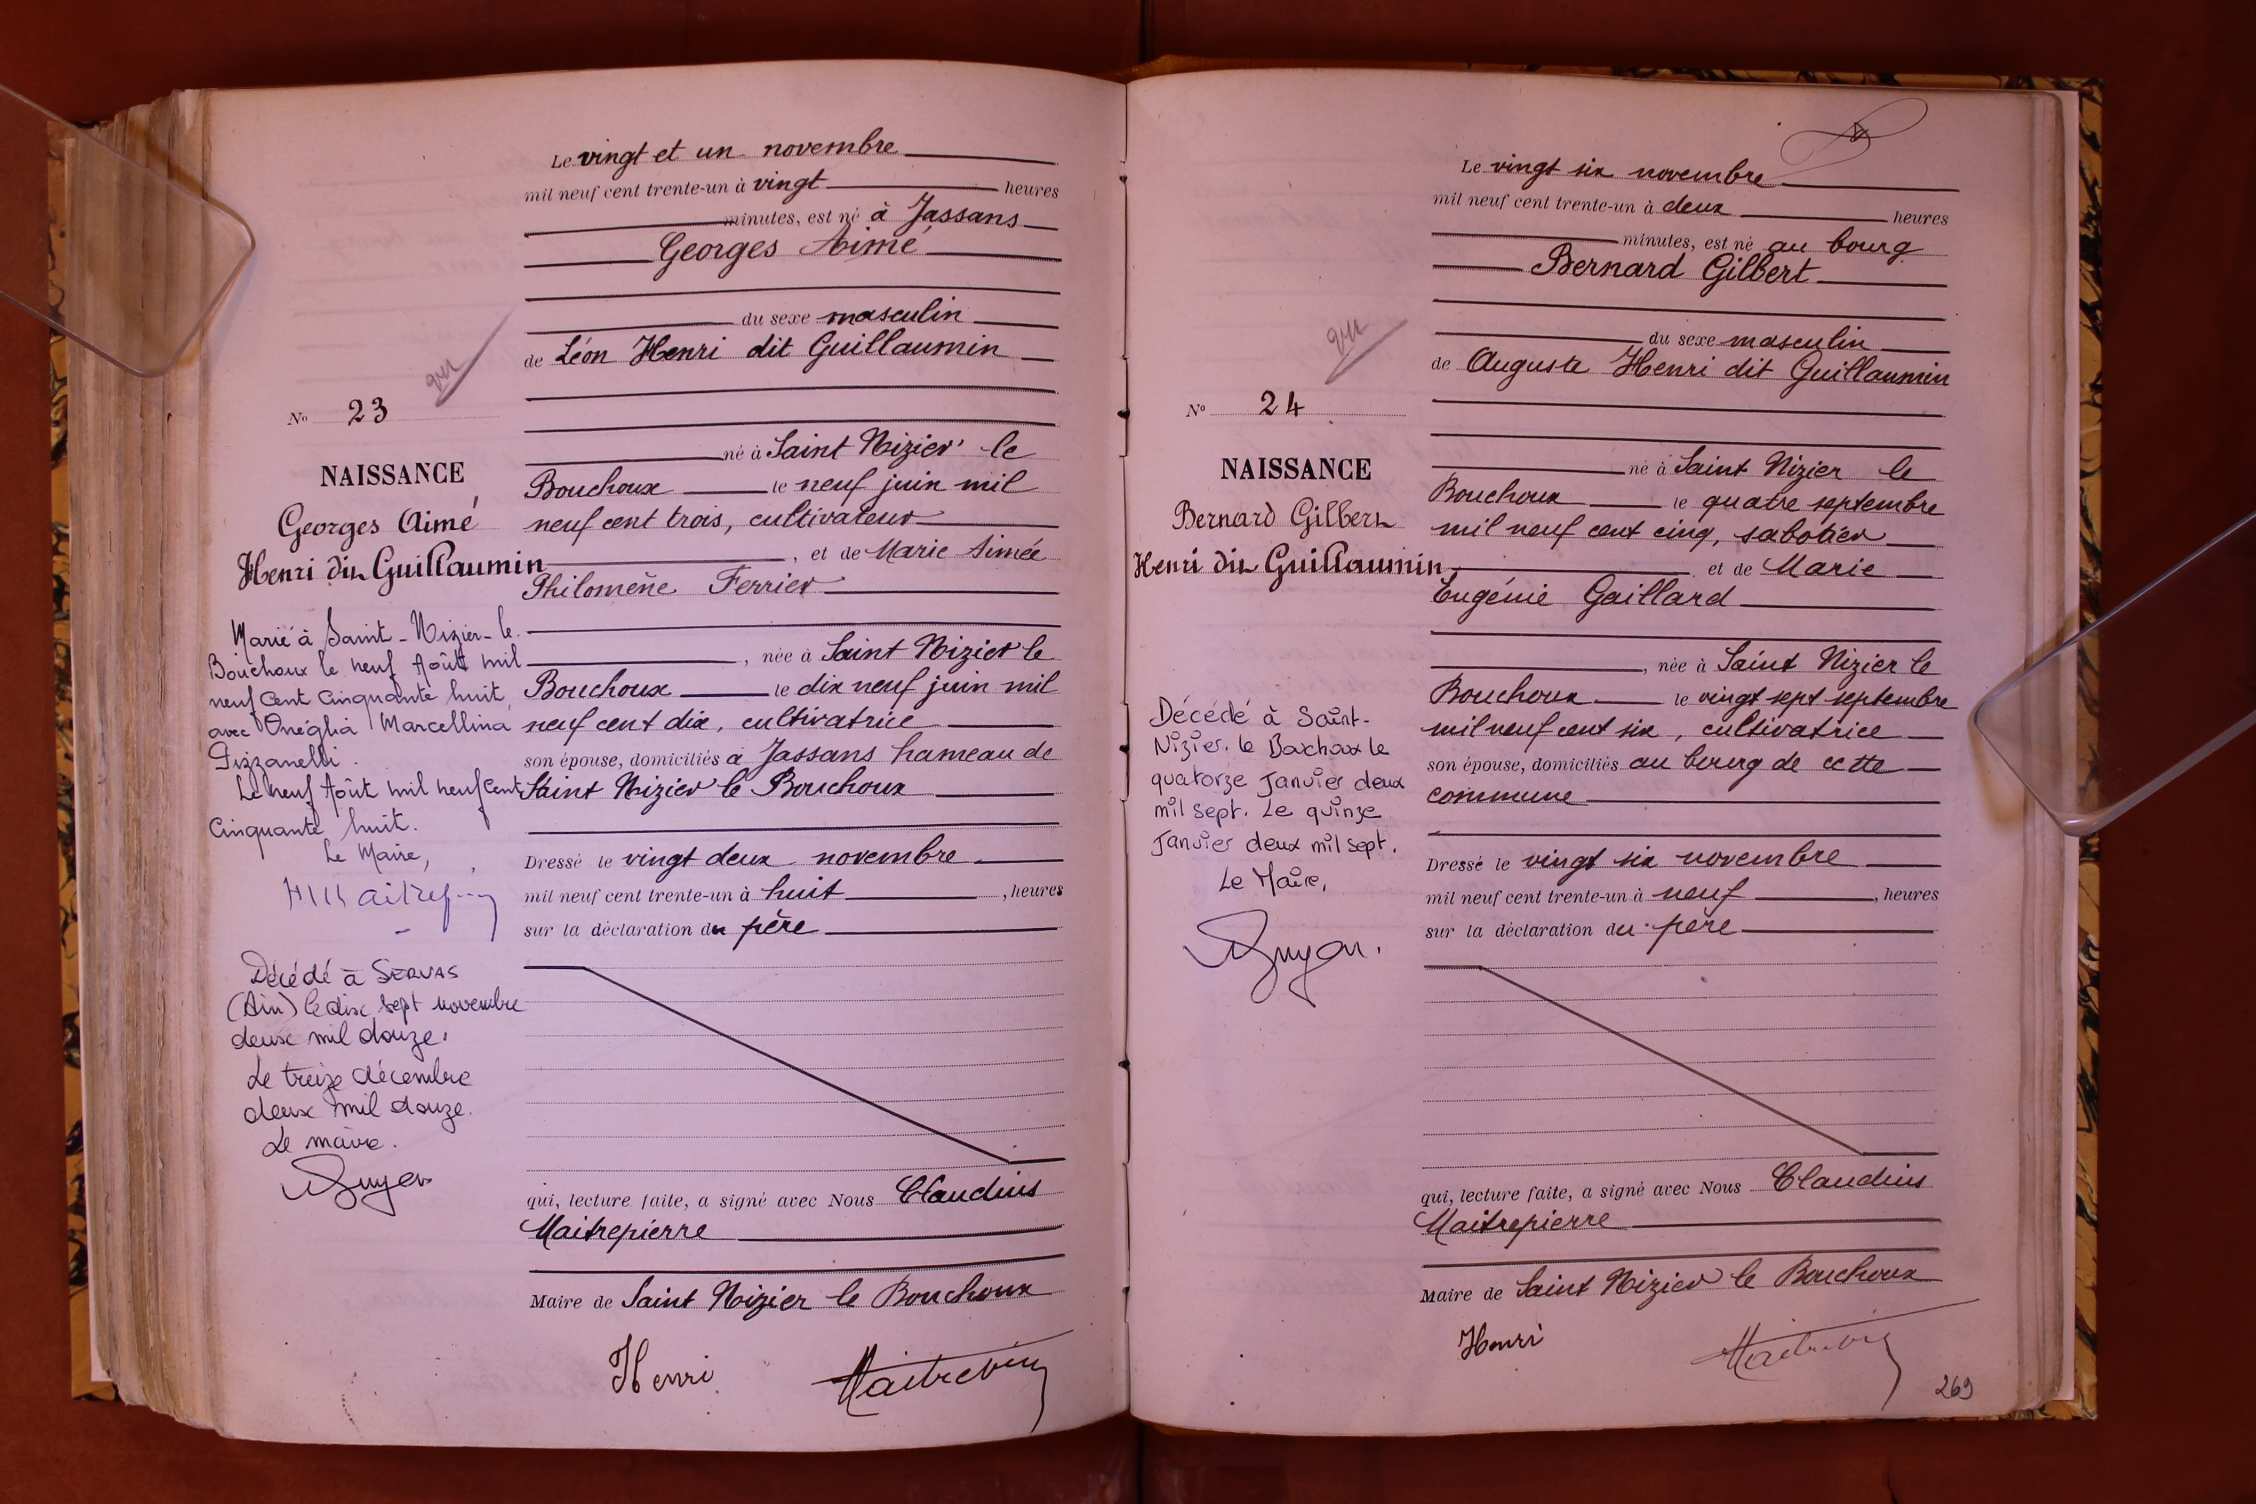 Le vingt et un novembre
mil neuf cent trente-un à vingt heures
minutes, est né à Jassans
Georges Aimé
du sexe masculin
de Léon Henri dit Guillaumin
né à Saint Nizier le
Bouchoux le neuf juin mil
neuf cent trois, cultivateur
, et de Marie Aimée
Philomène Ferrier
, née à Saint Nizier le
Bouchoux le dix neuf juin mil
neuf cent dix, cultivatrice
son épouse, domiciliés à Jassans hameau de
Saint Nizier le Bouchoux
Dressé le vingt deux novembre
mil neuf cent trente-un à huit , heures
sur la déclaration du père
qui, lecture faite, a signé avec Nous Claudius
Maitrepierre
Maire de Saint Nizier le Bouchoux
Henri
No 23
NAISSANCE
Georges Aimé
Henri dit Guillaumin
Marié à Saint-Nizier-le
Bouchoux le neuf Août mil
neuf cent cinquante huit,
avec Onéglia Marcellina
Pizzanelli.
Le neuf Août mil neuf cent
cinquante huit.
Le Maire,
Décédé à SERVAS
(Ain) le dix sept novembre
deux mil douze.
Le treize décembre
deux mil douze.
Le maire.
Le vingt six novembre
mil neuf cent trente-un à deux heures
minutes, est né au bourg
Bernard Gilbert
du sexe masculin
de Auguste Henri dit Guillaumin
né à Saint Nizier le
Bouchoux le quatre septembre
mil neuf cent cinq, sabotier
et de Marie
Eugénie Gaillard
, née à Saint Nizier le
Bouchoux le vingt sept septembre
mil neuf cent six, cultivatrice
son épouse, domiciliés au bourg de cette
commune
Dressé le vingt six novembre
mil neuf cent trente-un à neuf , heures
sur la déclaration du père
qui, lecture faite, a signé avec Nous Claudius
Maitrepierre
Maire de Saint Nizier le Bouchoux
Henri
No 24
NAISSANCE
Bernard Gilbert
Henri dit Guillaumin
Décédé à Saint-
Nizier-le Bouchoux le
quatorze Janvier deux
mil sept. Le quinze
Janvier deux mil sept.
Le Maire,
269